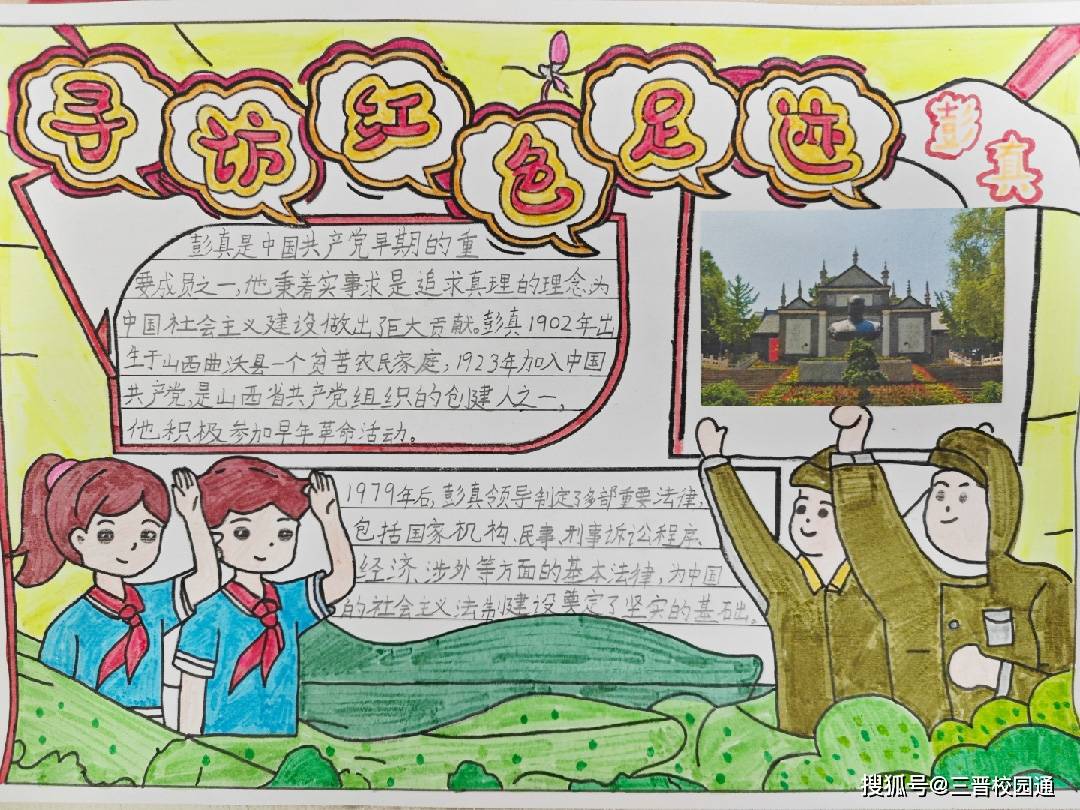 寻访红色足迹
彭真
彭真是中国共产党早期的重
要成员之一,他秉着实事求是追求真理的理念,为
中国社会主义建设做出了巨大贡献。彭真1902年出
生于山西曲沃县一个贫苦农民家庭,1923年加入中国
共产党,是山西省共产党组织的创建人之一,
他积极参加早年革命活动。
1979年后,彭真领导制定了多部重要法律,
包括国家机构、民事、刑事诉讼程序、
经济、涉外等方面的基本法律,为中国
的社会主义法制建设奠定了坚实的基础。
搜狐号@三晋校园通